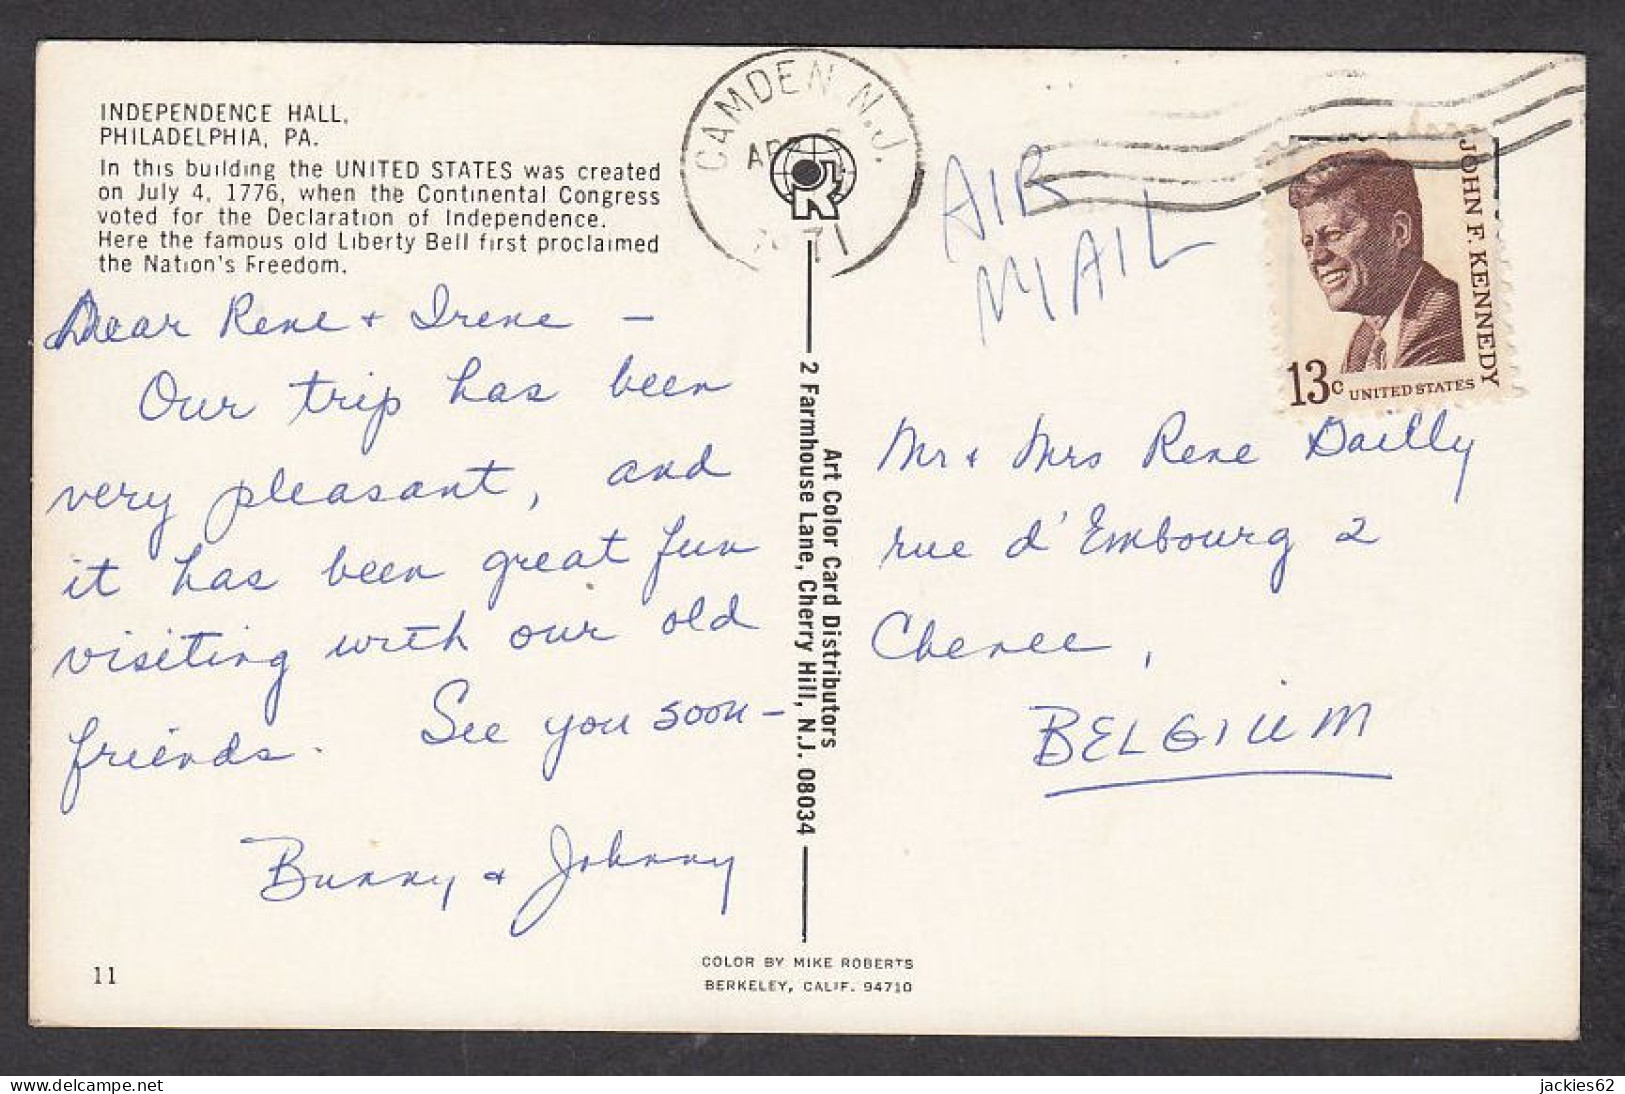 INDEPENDENCE HALL,
PHILADELPHIA, PA.
In this building the UNITED STATES was created
on July 4, 1776, when the Continental Congress
voted for the Declaration of Independence.
Here the famous old Liberty Bell first proclaimed
the Nation's Freedom.
Dear Rene + Irene -
Our trip has been
very pleasant, and
it has been great fun
visiting with our old
friends. See you soon -
Bunny + Johnny
11
CAMDEN N.J.
1971
R
Art Color Card Distributors
2 Farmhouse Lane, Cherry Hill, N.J. 08034
COLOR BY MIKE ROBERTS
BERKELEY, CALIF. 94710
AIR
MAIL
JOHN F. KENNEDY
13c UNITED STATES
Mr + Mrs Rene Dailly
rue d'Embourg 2
Chenee,
BELGIUM
jackies62